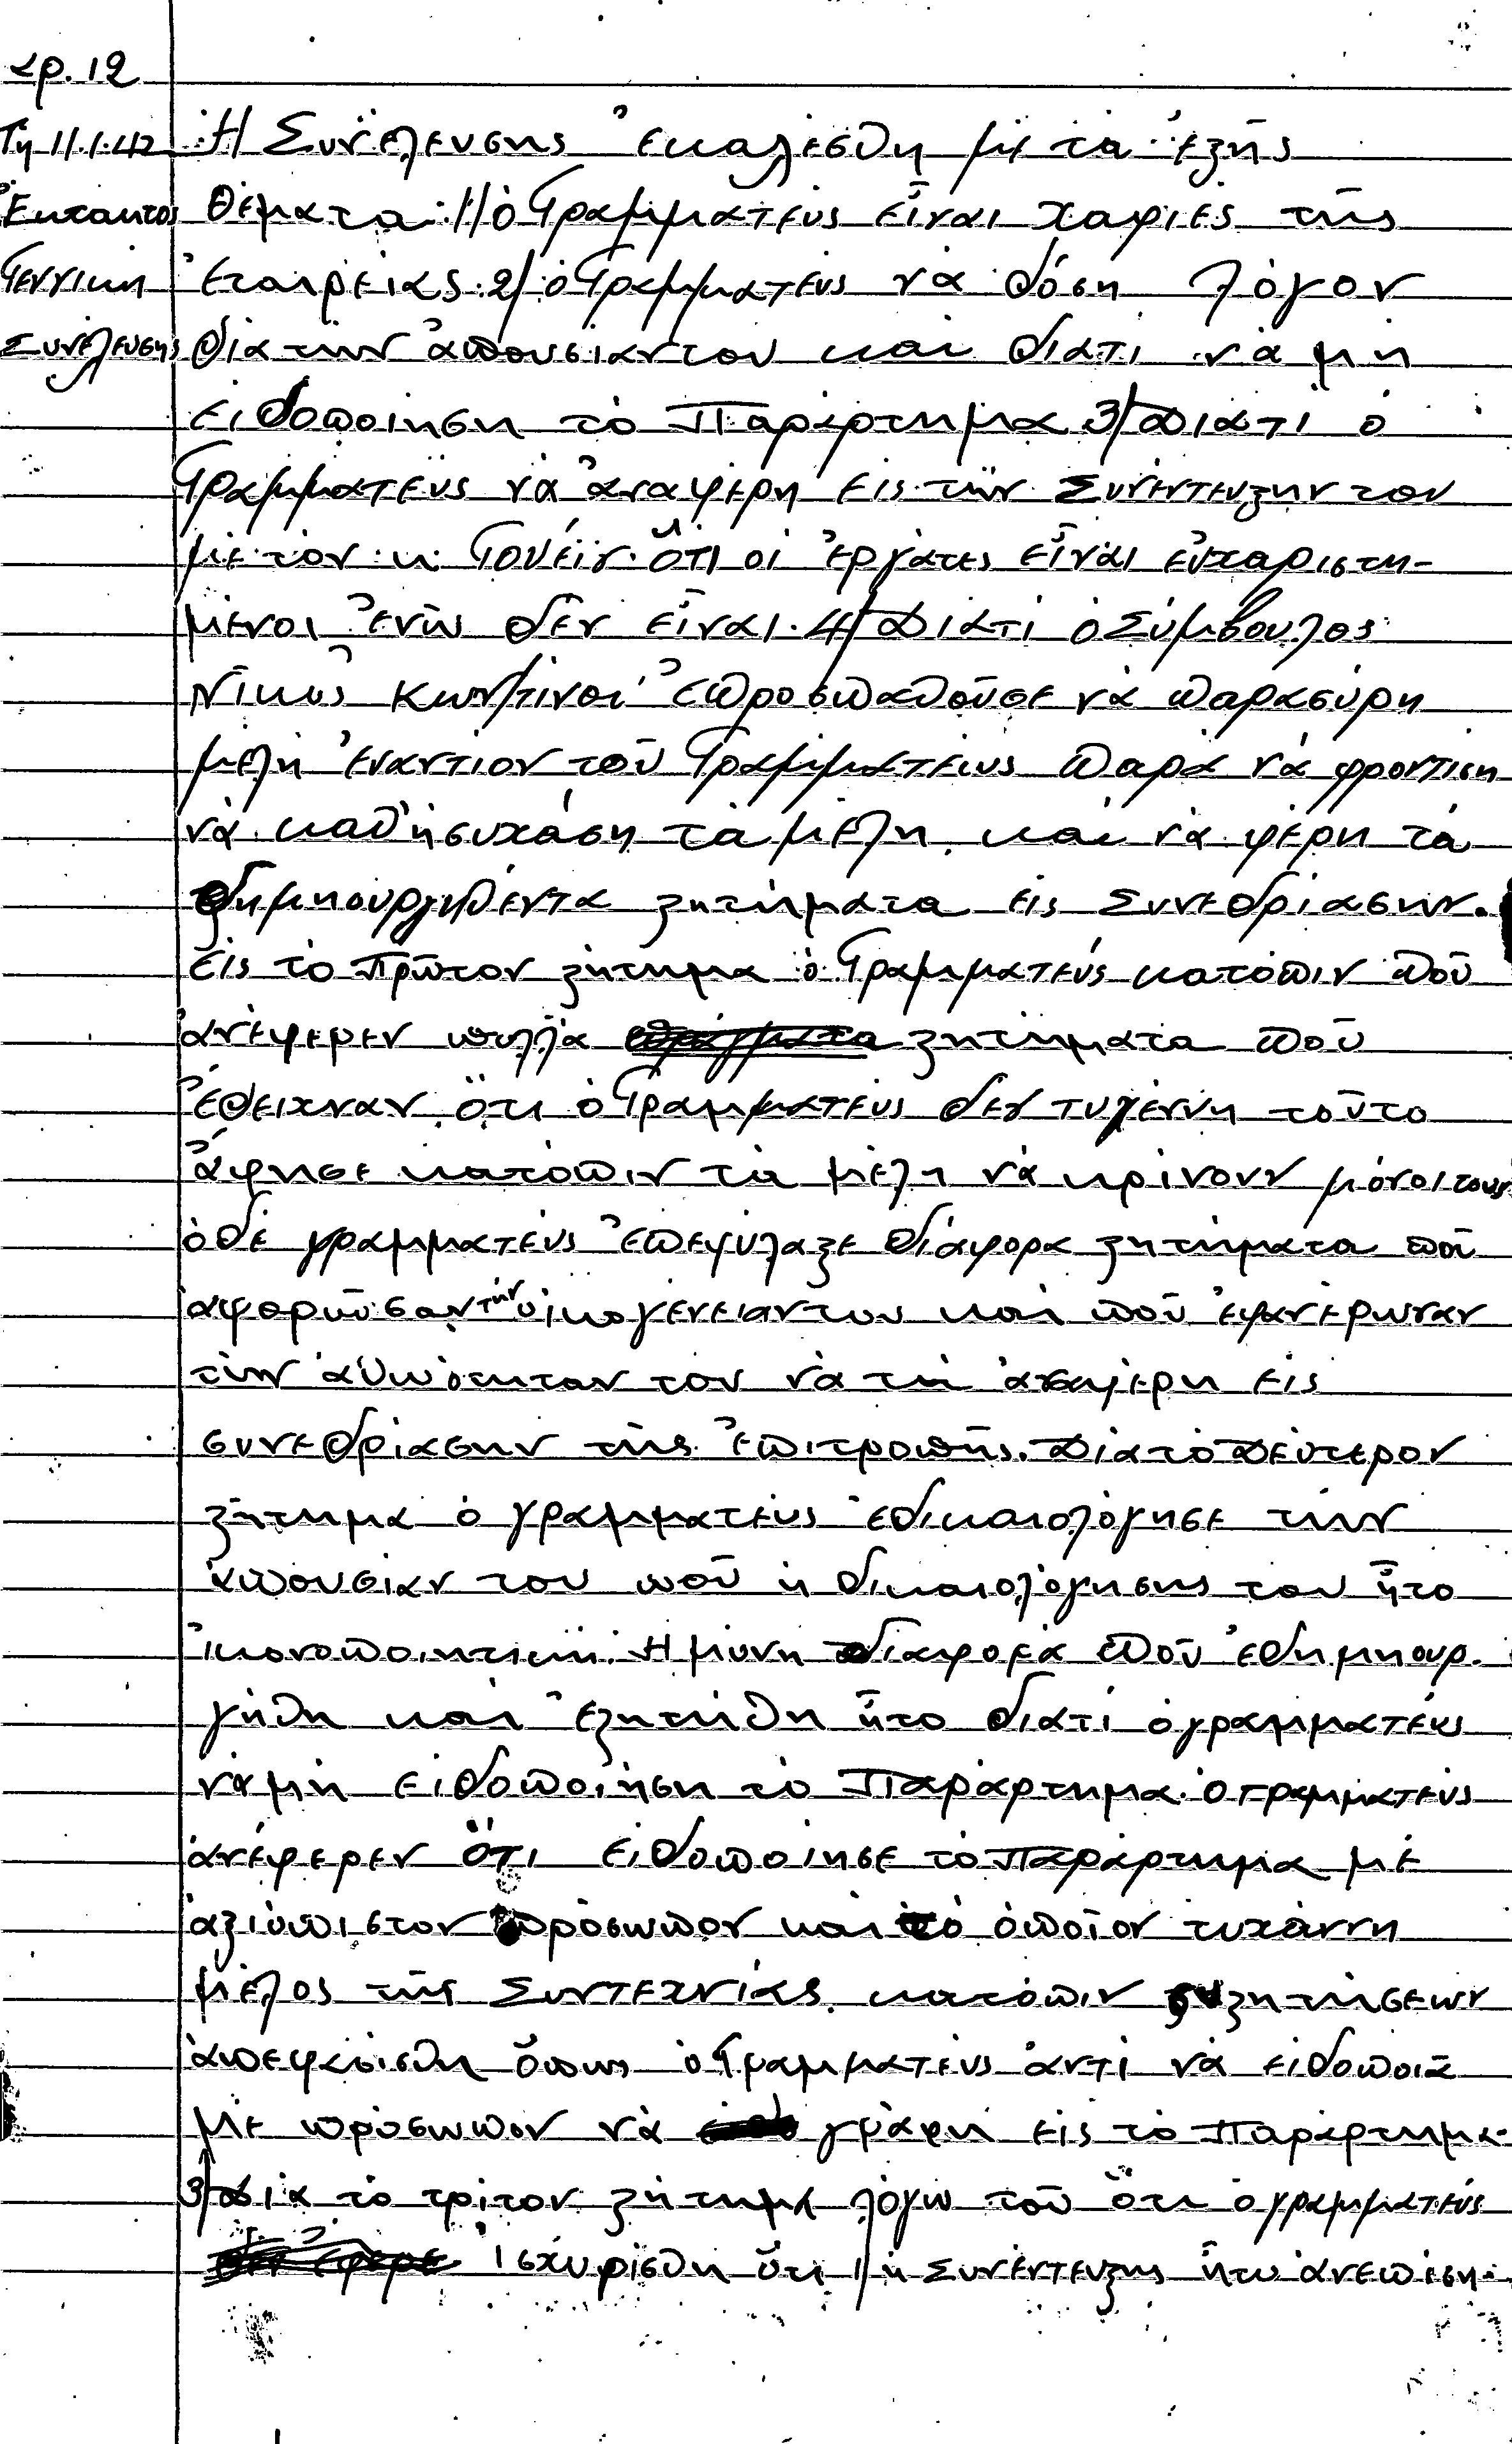 αρ. 12
Τη 11.1.42
Ἔκτακτος
Γεννικὴ
Συνέλευσης
Ἡ Συνέλευσης ἐκαλέσθη μὲ τὰ ἑξῆς
θέματα: 1/ ὁ Γραμματεὺς εἶναι χαφιὲς τῆς
Ἑταιρείας 2/ ὁ Γραμματεὺς νὰ δόση λόγον
διὰ τὴν ἀπουσίαν του καὶ διατὶ νὰ μὴ
εἰδοποίηση τὸ Παράρτημα 3/ Διατὶ ὁ
Γραμματεὺς νὰ ἀναφέρη εἰς τὴν Συνέντευξην του
μὲ τὸν κ Γουέϊγ ὅτι οἱ ἐργάτες εἶναι εὐχαριστη-
μένοι ἐνῶ δὲν εἶναι. 4/ Διατὶ ὁ Σύμβουλος
Νῖκος Κων/τίνου ἐπροσπαθοῦσε νὰ παρασύρη
μέλη ἐναντίον τοῦ Γραμματέως παρὰ νὰ φροντίση
νὰ καθησυχάση τὰ μέλη καὶ νὰ φέρη τὰ
δημηουργηθέντα ζητήματα εἰς Συνεδρίασην.
Εἰς τὸ Πρῶτον ζήτημα ὁ Γραμματεύς κατόπιν ποῦ
ἀνέφερεν πολλὰ πράγματα ζητήματα ποῦ
ἔδειχναν ὅτι ὁ Γραμματεὺς δὲν τυχέννη τοῦτο
ἄφησε κατόπιν τὰ μέλη νὰ κρίνουν μόνοι τους
ὁ δὲ γραμματεὺς ἐπεφύλαξε διάφορα ζητήματα ποῦ
ἀφοροῦσαν τὴν οἰκογένειαν του καὶ ποῦ ἐφανέρωναν
τὴν ἀθωότηταν του νὰ τὴ ἀναφέρη εἰς
συνεδρίασην τῆς ἐπιτροπῆς. Διὰ τὸ Δεύτερον
ζήτημα ὁ γραμματεὺς ἐδικαιολόγησε τὴν
ἀπουσίαν του ποῦ ἡ δικαιολόγησης του ἦτο
ἱκονοποιητική. Ἡ μόνη διαφορὰ ποῦ ἐδημηουρ.
γήθη καὶ ἐζητήθη ἦτο διατί ὁ γραμματεύς
νὰ μὴ εἰδοποιήση τὸ Παράρτημα. Ὁ Γραμματεὺς
ἀνέφερεν ὅτι εἰδοποίησε τὸ Παράρτημα μὲ
ἀξιόπιστον πρόσωπον καὶ τὸ ὁποῖον τυχάννη
μέλος τῆς Συντεχνίας. κατόπιν συζητήσεων
ἀπεφασίσθη ὅπως ὁ Γραμματεὺς ἀντὶ νὰ εἰδοποιᾶ
μὲ πρόσωπον νὰ γράφη εἰς τὸ Παράρτημα.
3/ Διὰ τὸ τρίτον ζήτημα λόγω τοῦ ὅτι ὁ γραμματεὺς
ἔφερε ἰσχυρίσθη ὅτι 1/ ἡ Συνέντευξης ἦτο ἀνεπίση-